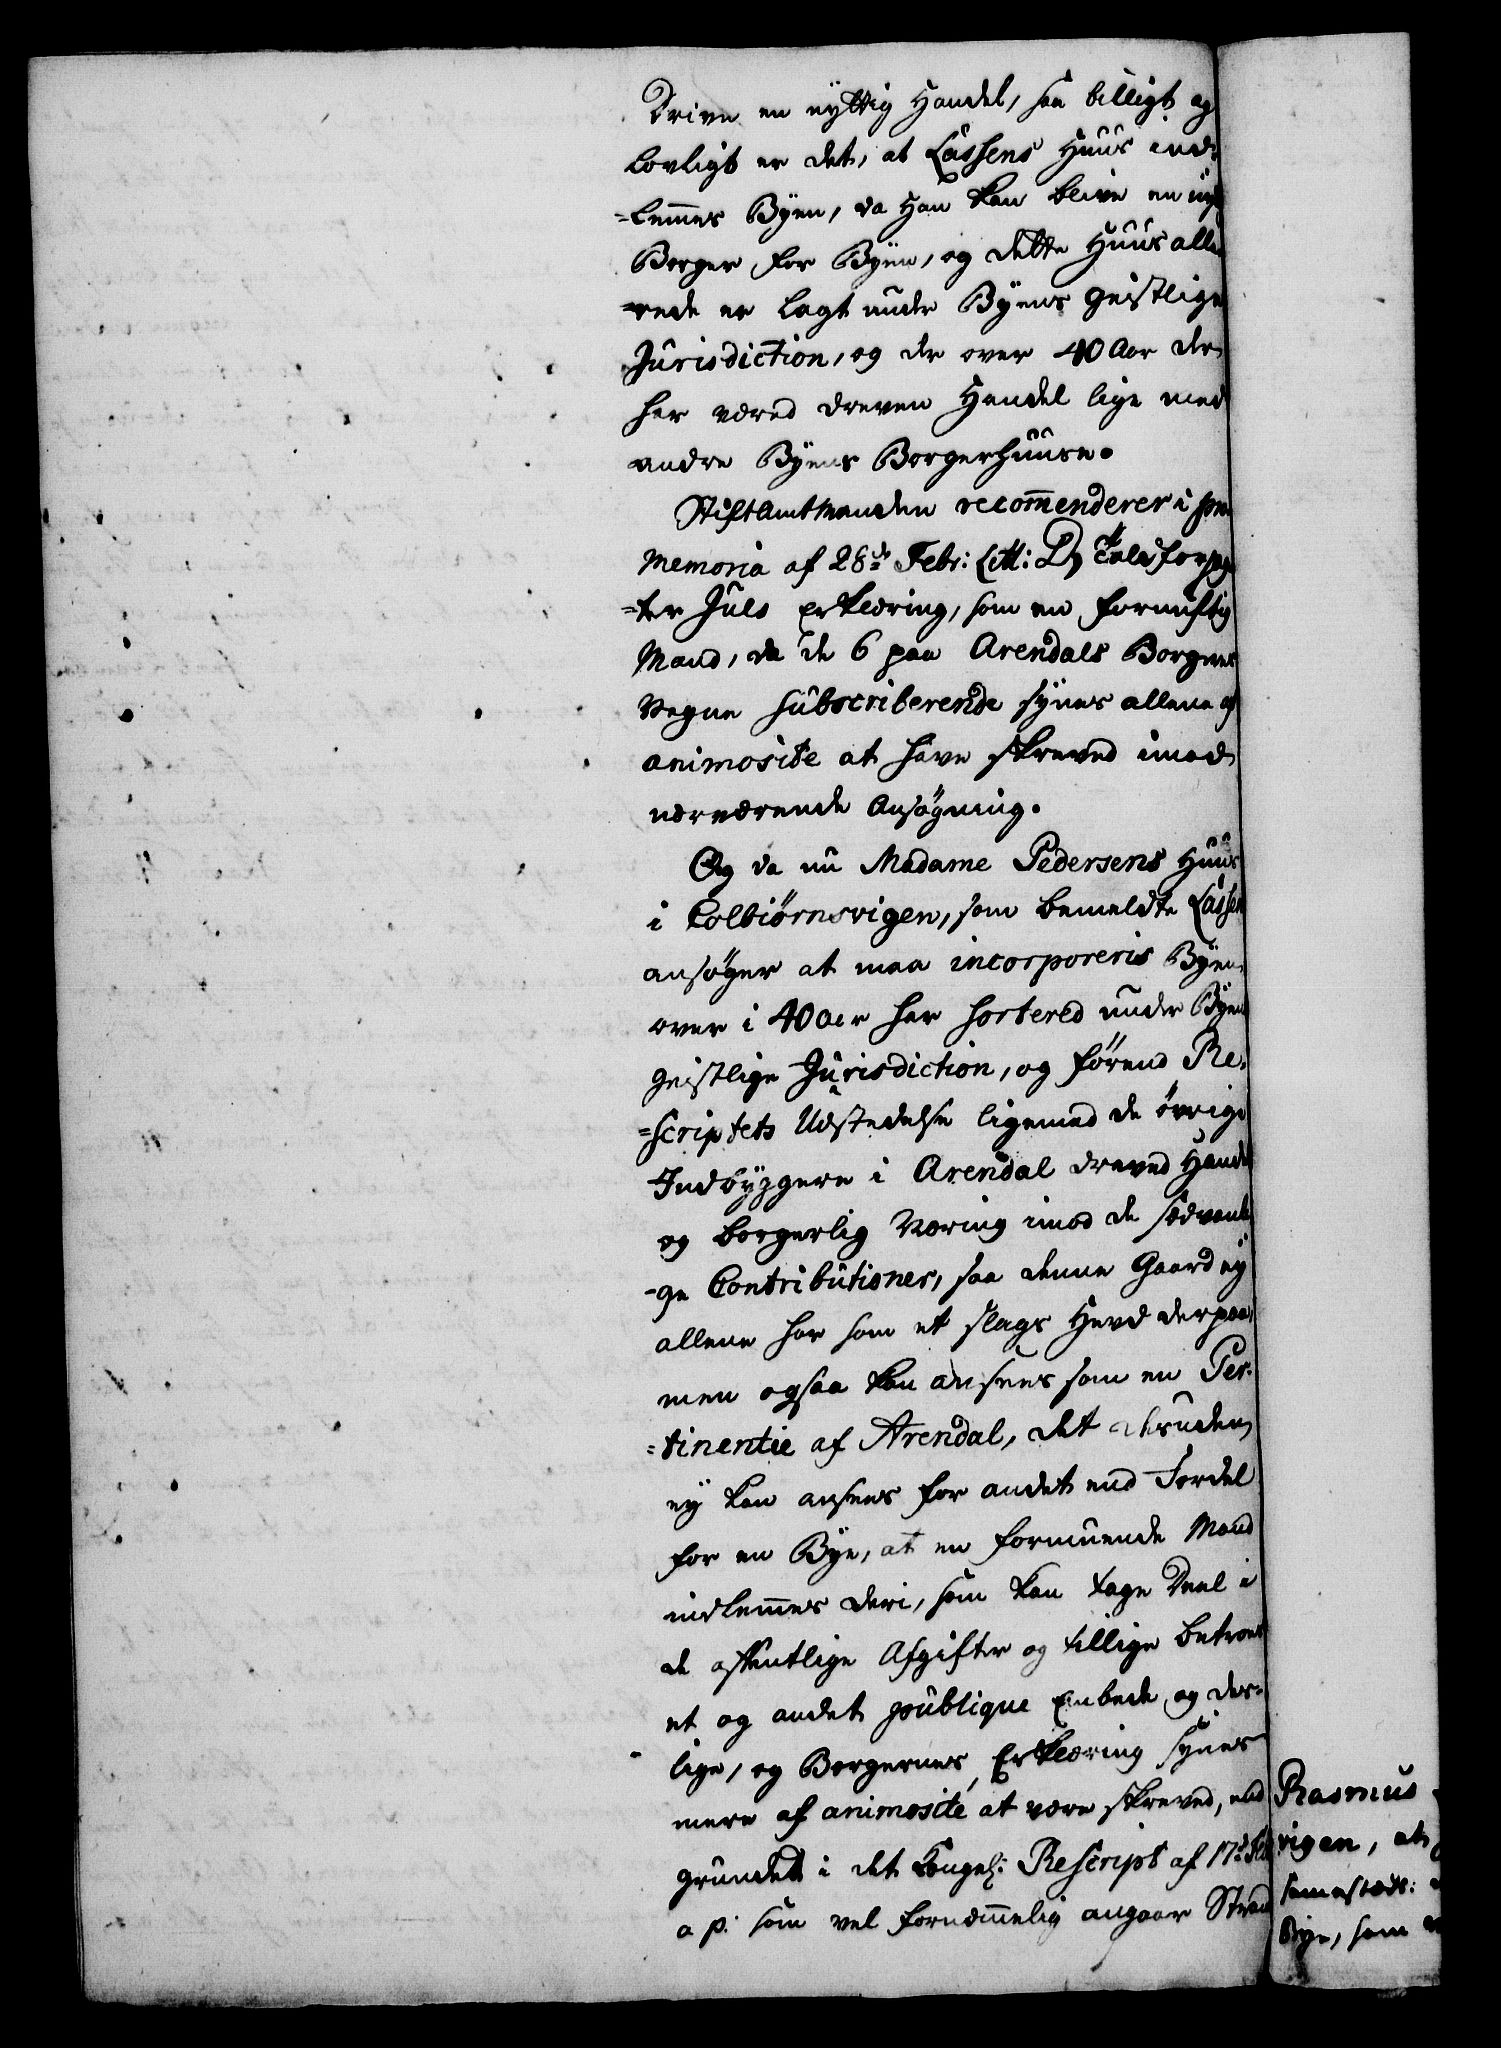 Drive en nyttig Handel, saa billigt og
lovligt er det, at Lassens Huus ind-
=lemmes Byen, da Han kan blive en nye
Borger for Byen, og dette Huus alle
=rede er lagt under Byens geistlige
Jurisdiction, og der over 40 Aar der
har været dreven Handel lige med
andre Byens Borgerhuuse.
Stiftamtmanden recommenderer i pro
Memoria af 28de Febr: Litt: D, Toldforpag
=ter Juls Erklæring, som en fornuftig
Mand, da de 6 paa Arendals Borgeres
Vegne subscriberende synes allene af
animosite at have skreved imod
nærværende Ansøgning.
Og da nu Madame Pedersens Huus
i Colbiørnsvigen, som bemeldte Lassen
ansøger at maa incorporeris Byen,
over i 40 Aar har sortered under Byens
geistlige Jurisdiction, og førend Re-
=scriptets Udstedelse ligemed de øvrige
Indbyggere i Arendal dreved Handel
og borgerlig Næring imod de sædvanli
-ge Contributioner, saa denne Gaard ey
allene har som et slags Hævd derpaa,
men ogsaa kan ansees som en Per-
=tinentie af Arendal, det desuden
ey kan ansees for andet end Fordel
for en Bye, at en formuende Mand
indlemmes deri, som kan tage Deel i
de offentlige Afgifter og tillige betroes
et og andet publique Embede og des-
lige, og Borgernes Erklæring synes
mere af animosité at være skreved, end
grundet i det Kongel: Rescript af 17de Febr
a p: som vel fornemmelig angaar Strand
Rasmus
vigen, at
sammestæds:
Bye, som